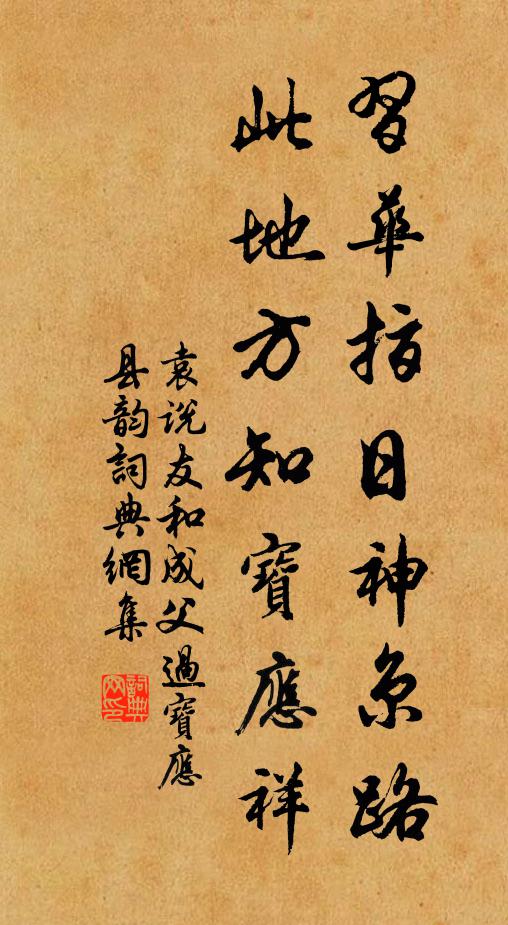 翠華指日神京路
此地方知寶應祥
袁说友和成父過寶應
县韵詞典網集
詞典
网印